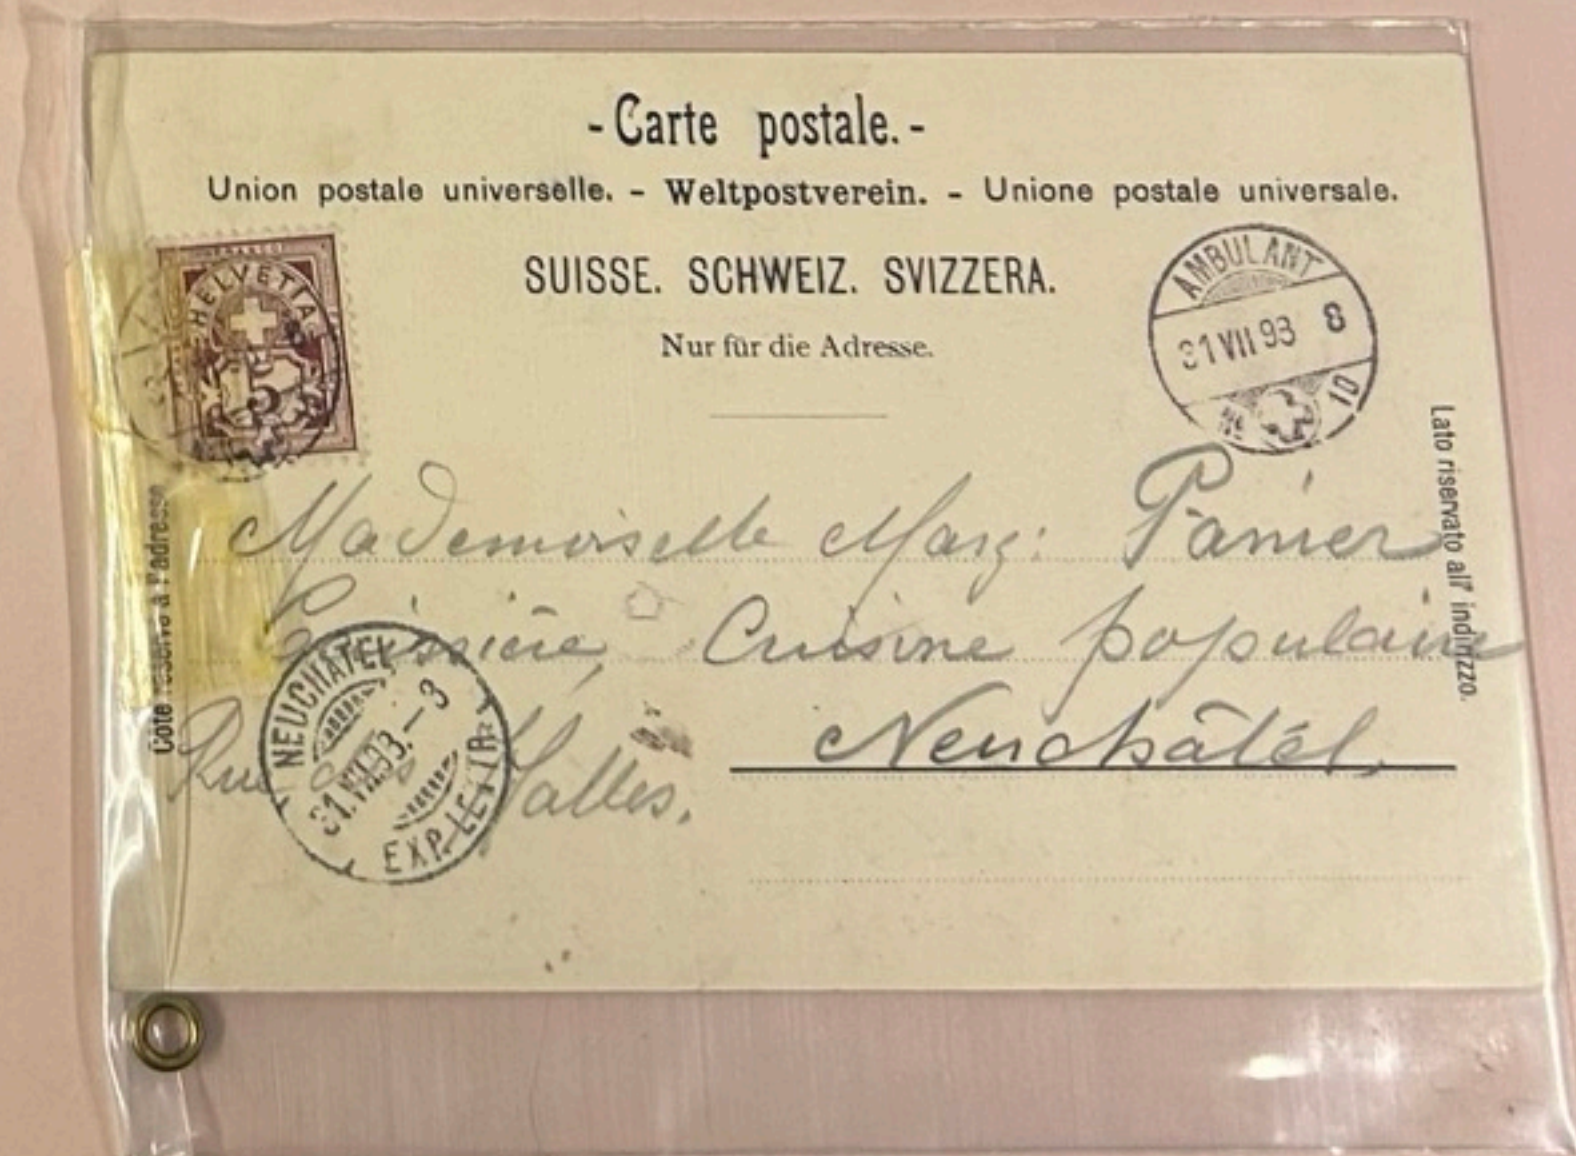 - Carte postale. -
Union postale universelle. - Weltpostverein. - Unione postale universale.
SUISSE. SCHWEIZ. SVIZZERA.
Nur für die Adresse.
HELVETIA
5
AMBULANT
31 VII 93 8
No 10
Côté réservé à l'adresse
Lato riservato all' indirizzo.
Mademoiselle Marg: Panier
Caissière, Cuisine populaire
Neuchâtel,
Rue des Salles.
NEUCHATEL
31.VII.93.-3
EXP. LETTR.